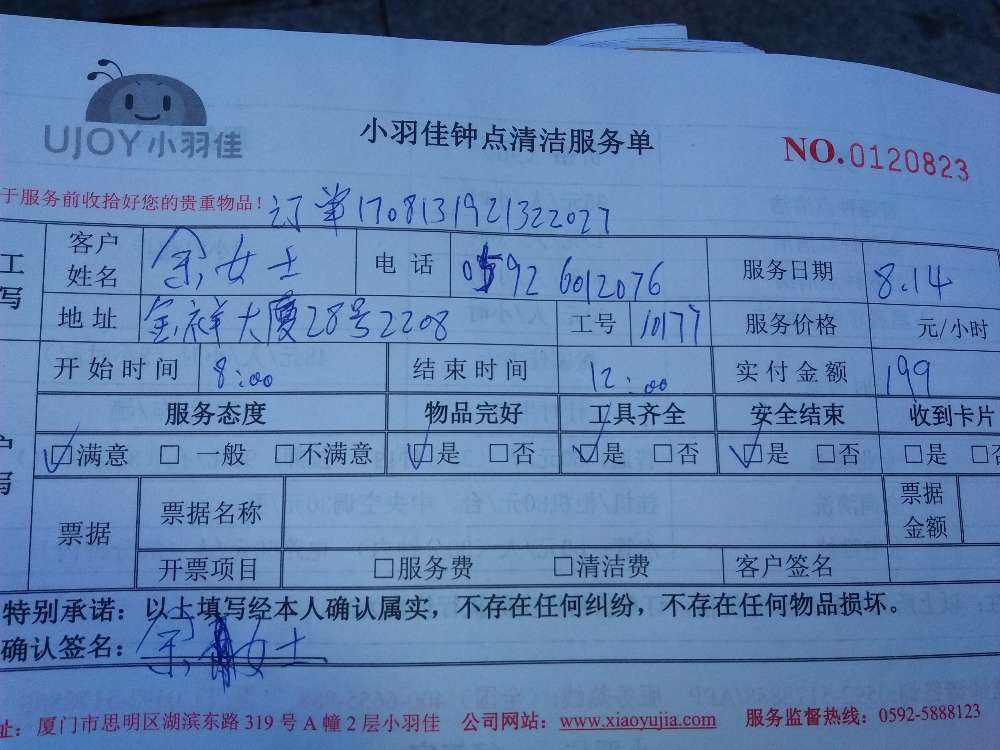 UJOY小羽佳
小羽佳钟点清洁服务单
NO.0120823
于服务前收拾好您的贵重物品！订单1708131921322027
工
写
客户姓名 余女士 电话 0592 6012076 服务日期 8.14
地址 金祥大厦28号2208 工号 10177 服务价格 元/小时
开始时间 8:00 结束时间 12:00 实付金额 199
服务态度 物品完好 工具齐全 安全结束 收到卡片
户
写
☑满意 □一般 □不满意 ☑是 □否 ☑是 □否 ☑是 □否 □是 □否
票据 票据名称 票据金额
开票项目 □服务费 □清洁费 客户签名
特别承诺：以上填写经本人确认属实，不存在任何纠纷，不存在任何物品损坏。
确认签名：余女士
址：厦门市思明区湖滨东路319号A幢2层小羽佳 公司网站：www.xiaoyujia.com 服务监督热线：0592-5888123